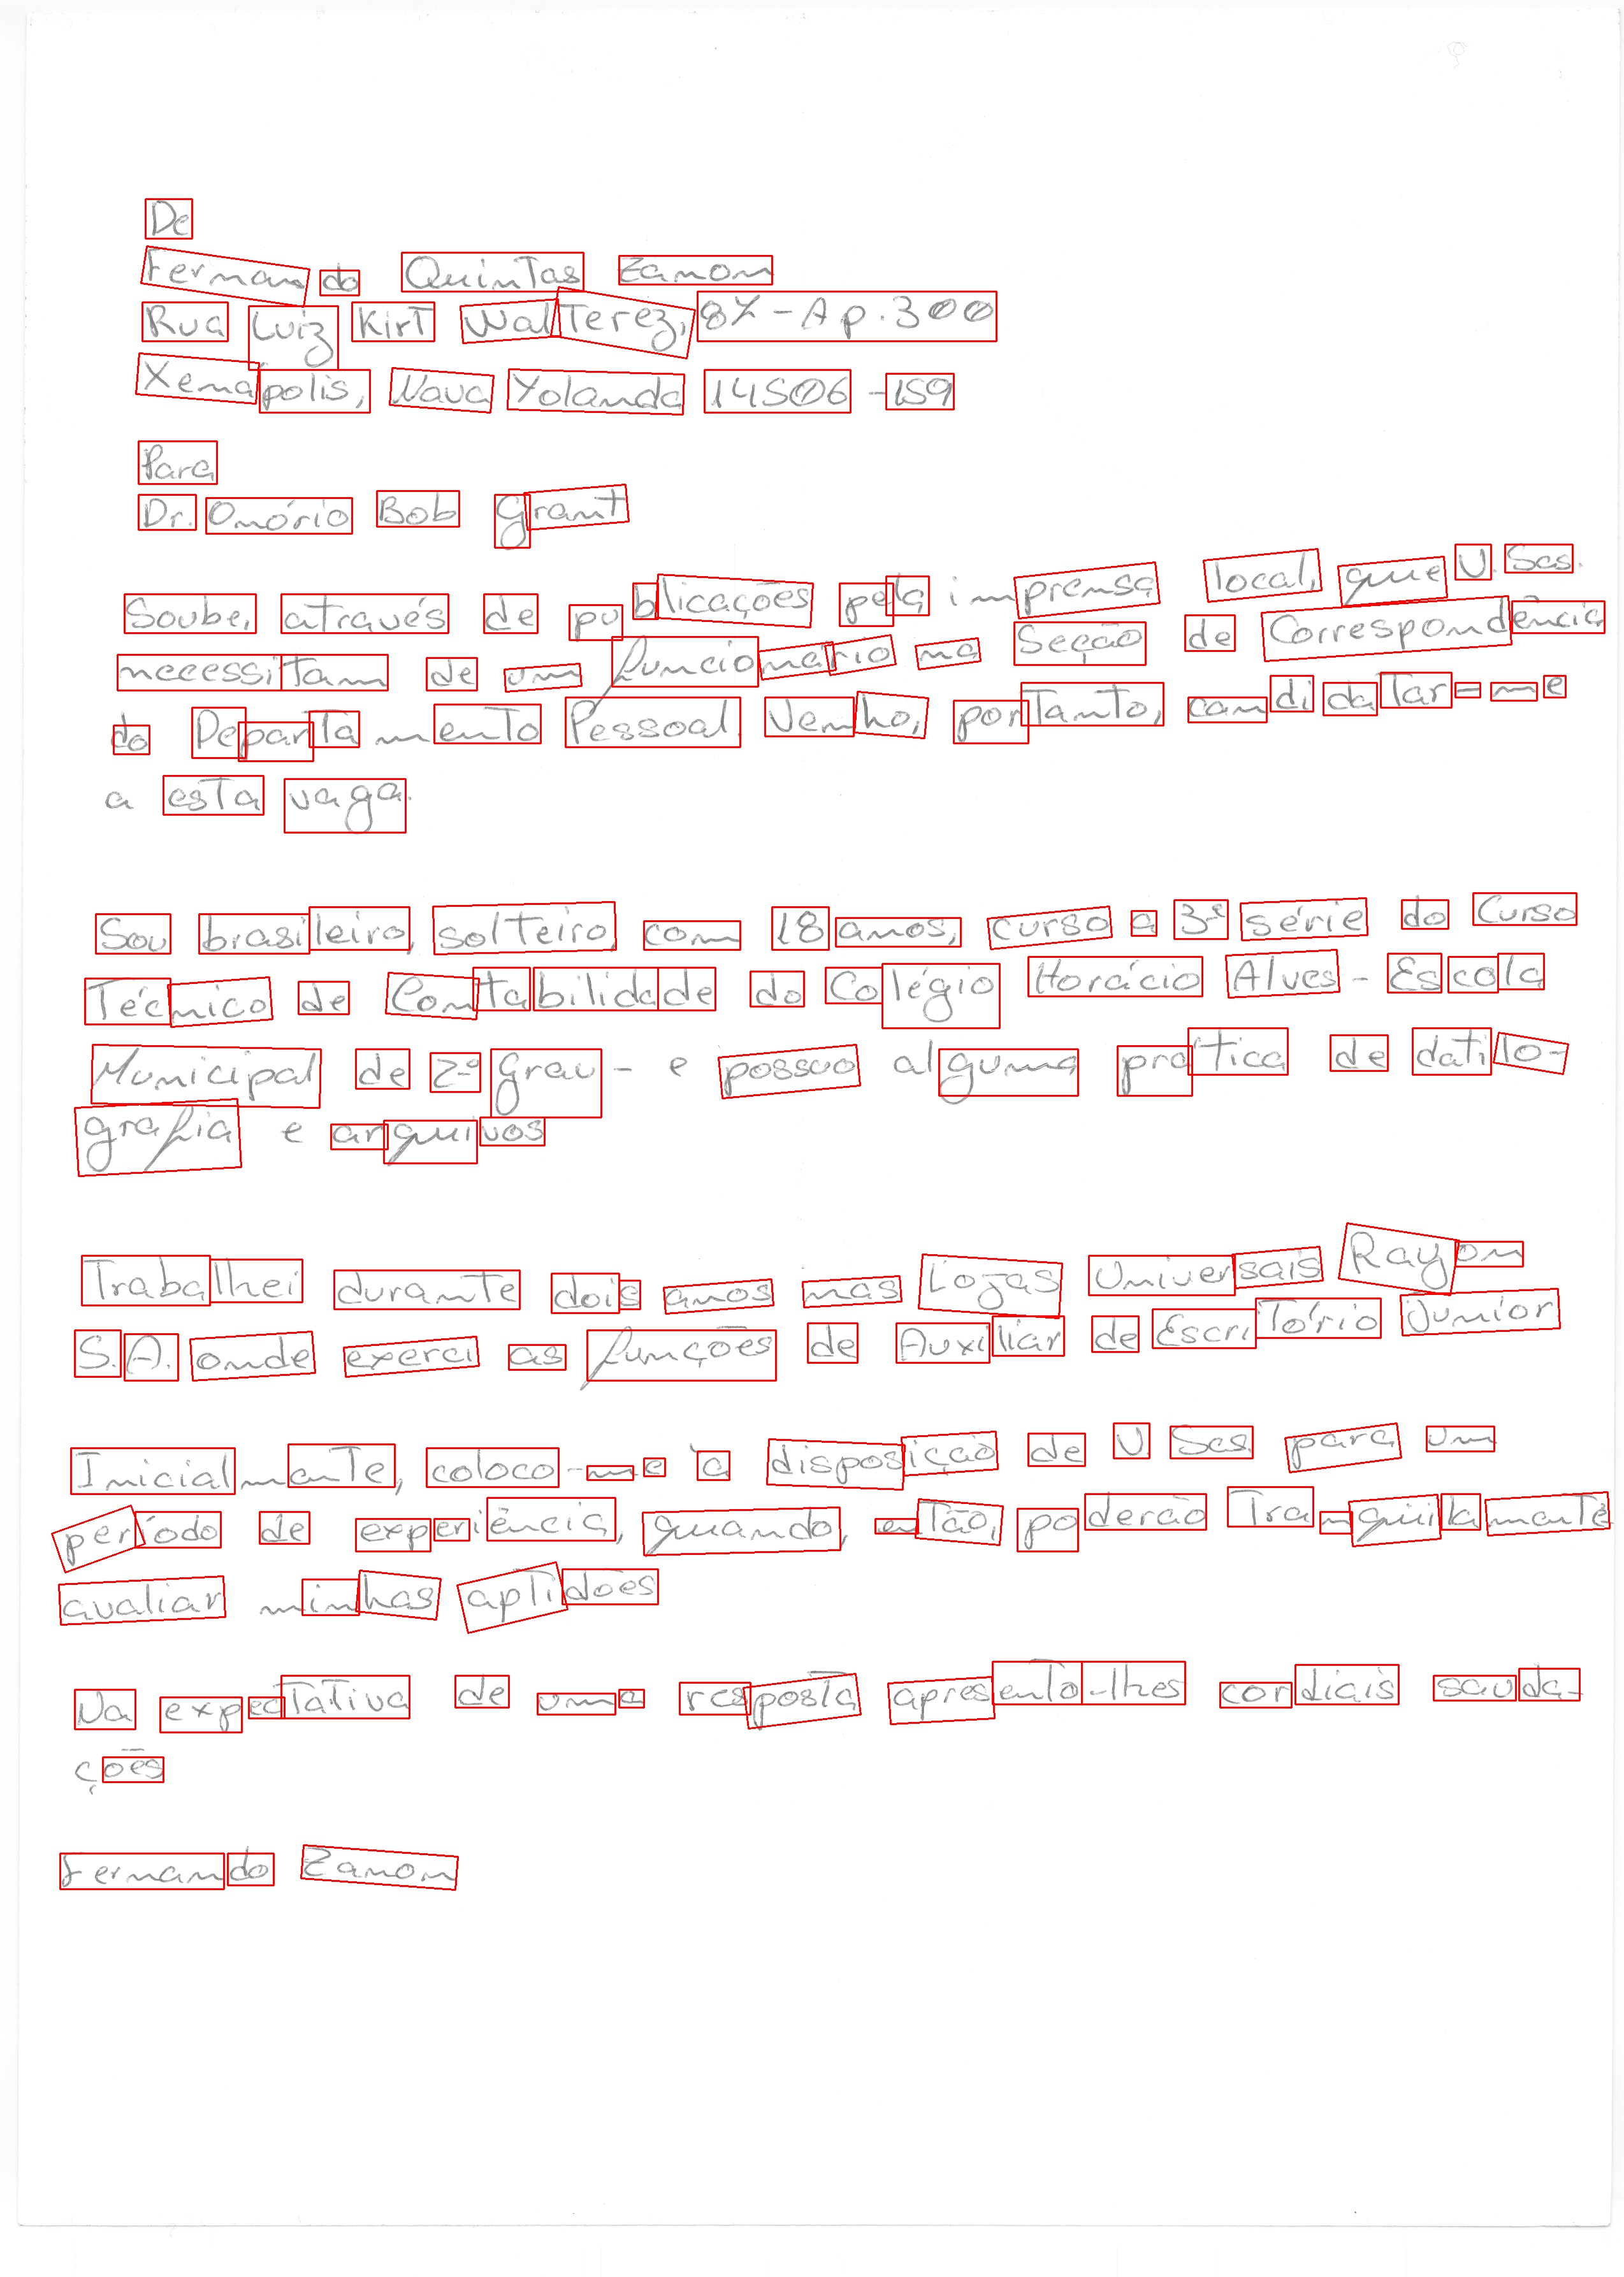 De
Fernando Quintas Zanon
Rua Luiz Kirt Walterez, 87 - Ap. 300
Xenápolis, Nava Yolanda 14506-159
Para
Dr. Onório Bob Grant
Soube, através de publicações pela imprensa local, que V. Sas.
necessitam de um funcionário na Seção de Correspondência
do Departamento Pessoal. Venho, portanto, candidatar-me
a esta vaga.
Sou brasileiro, solteiro, com 18 anos, curso a 3ª série do Curso
Técnico de Contabilidade do Colégio Horácio Alves - Escola
Municipal de 2º Grau - e possuo alguma prática de datilo-
grafia e arquivos
Trabalhei durante dois anos nas Lojas Universais Rayon
S.A. onde exerci as funções de Auxiliar de Escritório Junior
Inicialmente, coloco-me à disposição de V. Sas. para um
período de experiência, quando, então, poderão tranquilamente
avaliar minhas aptidões
Na expectativa de uma resposta apresento-lhes cordiais sauda-
ções
Fernando Zanon